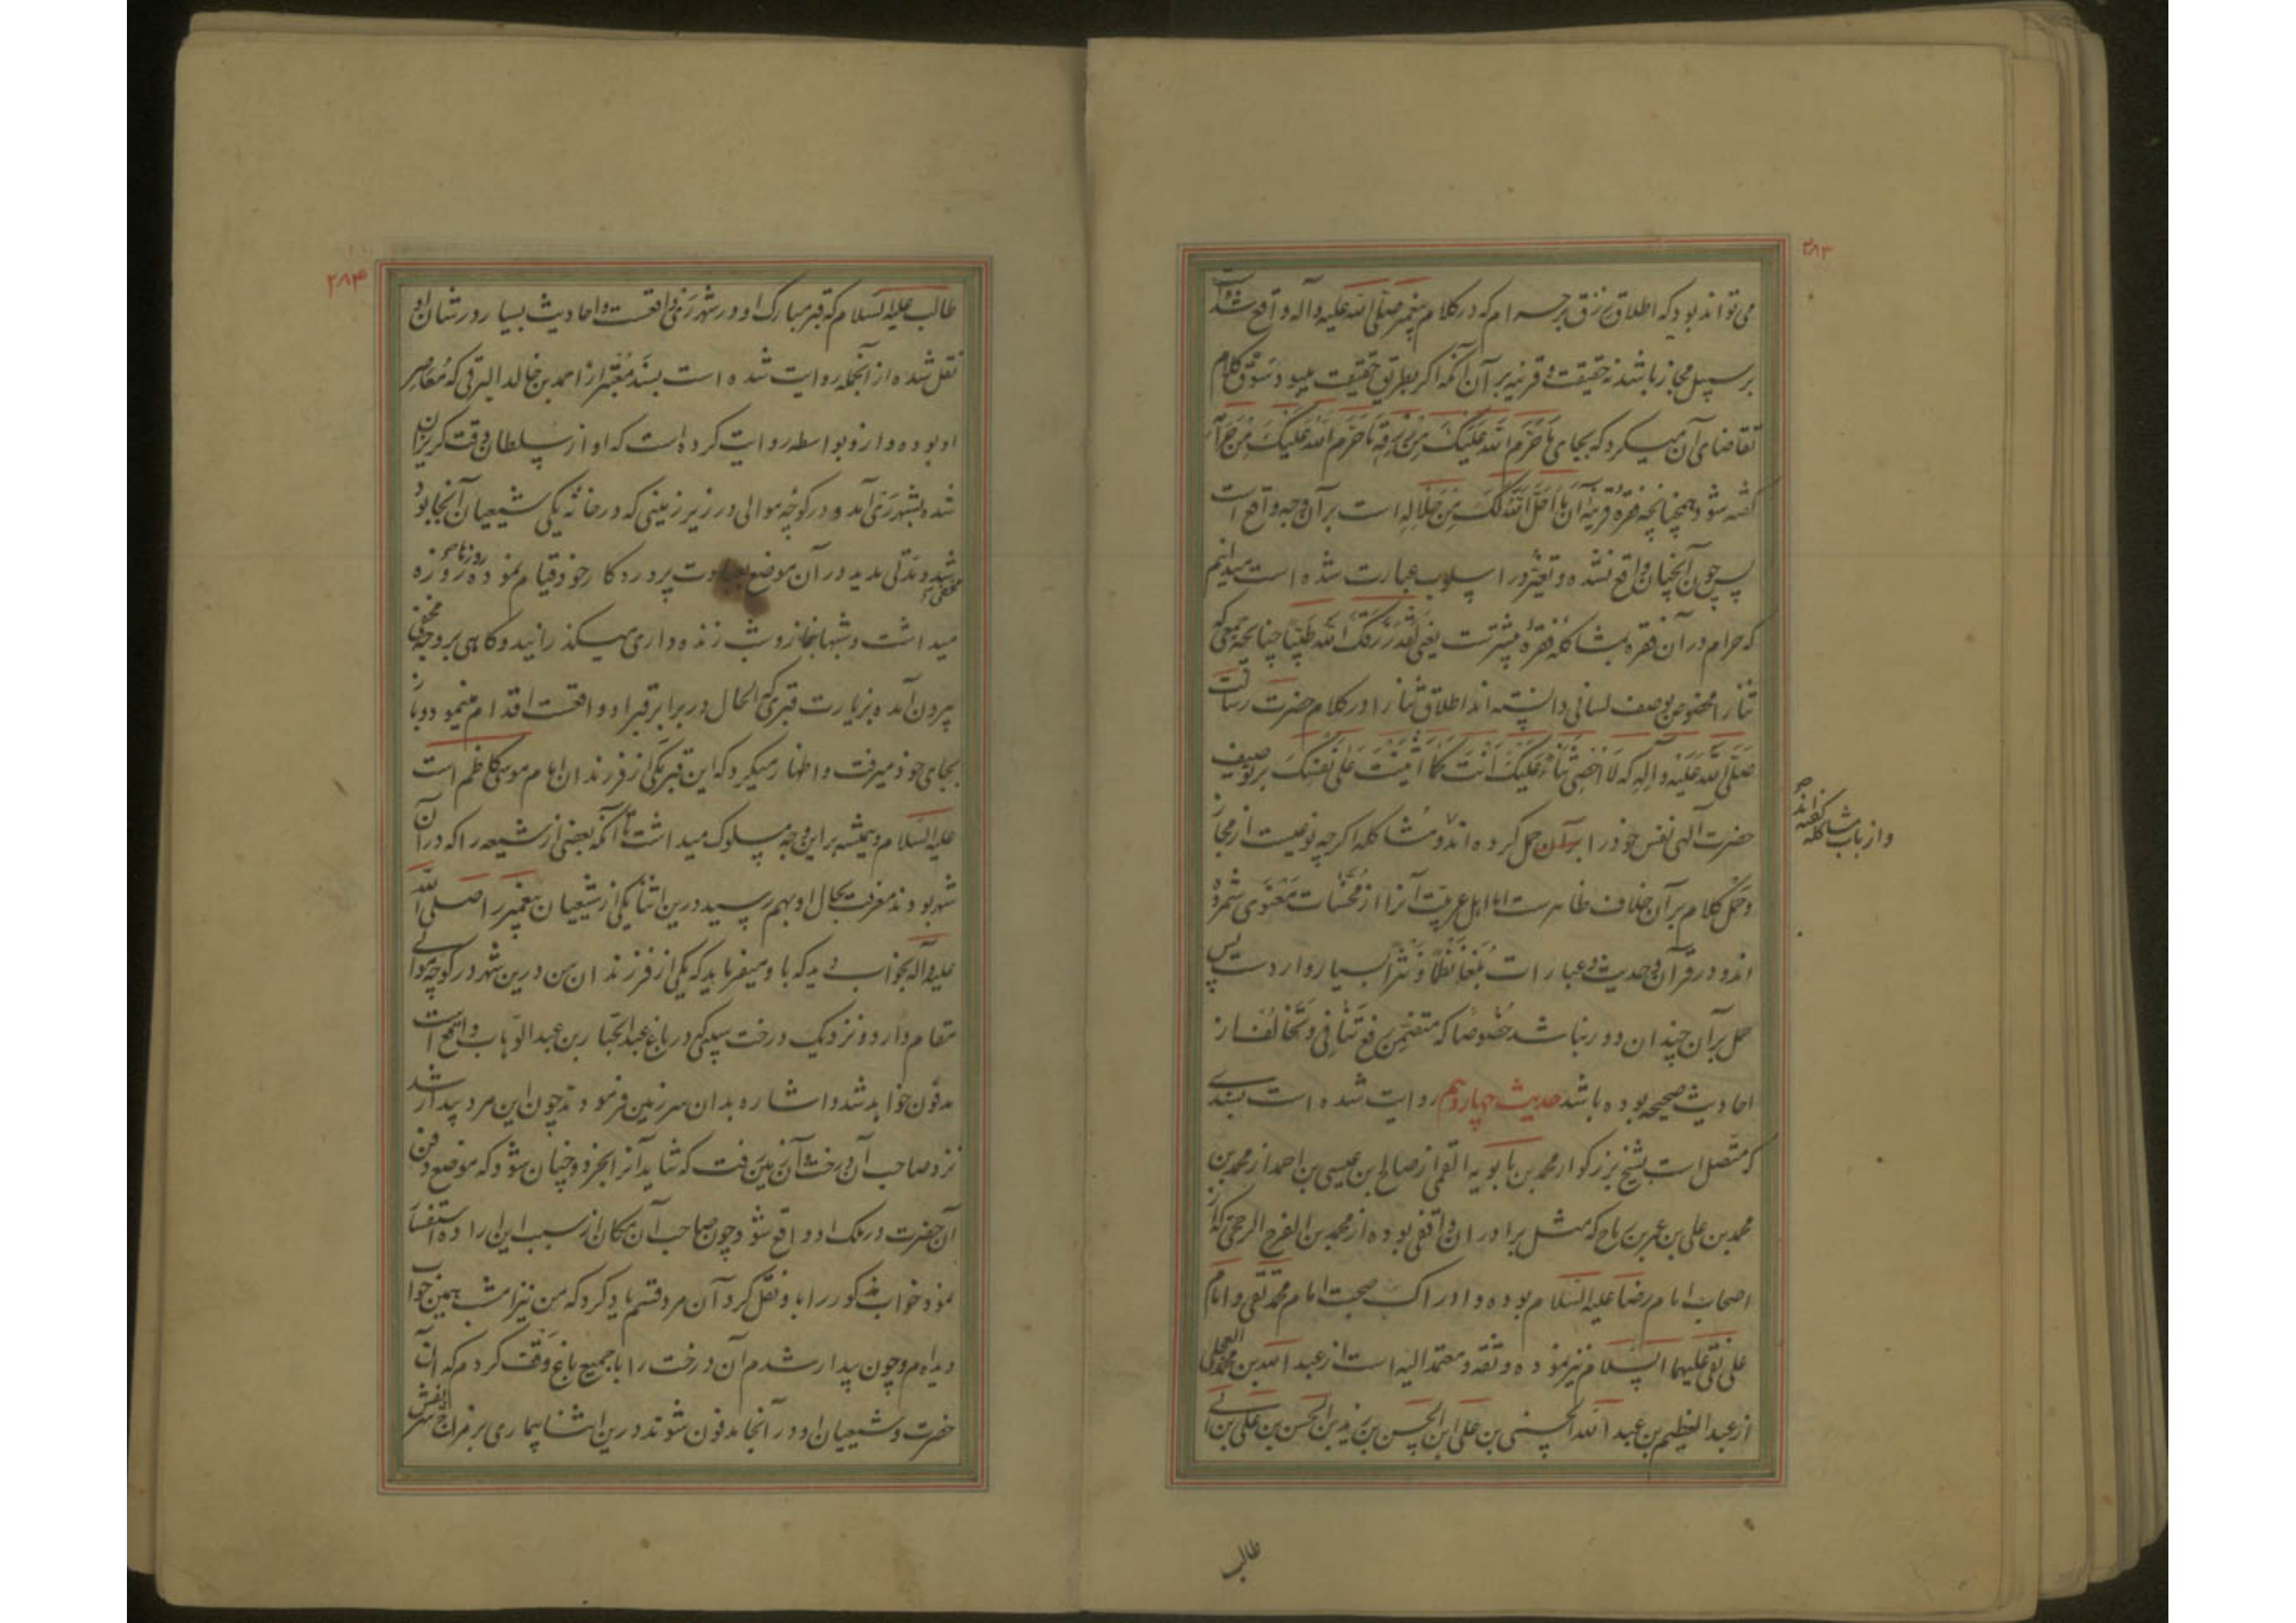 ۲۸۳
می تواند بود که اطلاق رزق بر حرام که در کلام پیغمبر صلی الله علیه وآله واقع شده است
بر سبیل مجاز باشد نه حقیقت و قرینه بر آن آنکه اگر بطریق حقیقت میبود سوق کلام
تقاضای آن میکرد که بجای ما حَرَّم الله علیک من رزقه ما حرم الله علیک من حرامه
گفته شود همچنانچه فقره قرینه آن ما احل الله لک من حلاله است بر آن وجه واقع است
پس چون آنچنان واقع نشده و تغیر در اسلوب عبارت شده است میدانیم
که حرام در آن فقره بمشاکله فقره پیشترست یعنی لقد رزقک الله طیبا چنانچه جمعی که
ثنا را مخصوص بوصف لسانی دانسته اند اطلاق ثنا را در کلام حضرت رسالت
صلی الله علیه وآله که لا احصی ثناء علیک انت کما اثنیت علی نفسک بر توصیف
حضرت الهی نفس خود را بر آن حمل کرده اند و مشاکله اگرچه نوعیست از مجاز
و از باب مشاکله گفته اند صح
و حمل کلام بر آن خلاف ظاهرست اما اهل عربیت آنرا از محسنات معنوی شمرده
اند و در قرآن و حدیث و عبارات بلغا نظماً و نثراً بسیار واردست پس
حمل بر آن چندان دور نباشد خصوصا که متضمن رفع تنافی و تخالف از
احادیث صحیحه بوده باشد حدیث چهاردهم روایت شده است بسندی
که متصل است بشیخ بزرگوار محمد بن بابویه القمی از صالح بن عیسی بن احمد از محمد بن
محمد بن علی بن عمر بن رباح که مثل برادران واقفی بوده از محمد بن الفرج الرخجی که از
اصحاب امام رضا علیه السلام بوده و ادراک صحبت امام محمد تقی و امام
علی نقی علیهما السلام نیز نموده و ثقه و معتمد الیه است از عبد الله بن محمد العجلی
از عبد العظیم بن عبد الله الحسنی بن علی ابن الحسن بن زید بن الحسن بن علی بن ابی
طالب
۲۸۴
طالب علیه السلام که قبر مبارک او در شهر ری واقعست و احادیث بسیار در شان او
نقل شده از آنجمله روایت شده است بسند معتبر از احمد بن خالد البرقی که معاصر
او بوده و از و بواسطه روایت کرده است که او از سلطان وقت گریزان
شده بشهر ری آمد و در کوچه موالی در زیر زمینی که در خانه یکی شیعیان آنجا بود
مخفی شد و مدتی مدید در آن موضع بعبادت پروردگار خود قیام نموده روزها روزه
میداشت و شبها بنماز و شب زنده داری میگذرانید و گاهی بر وجه مخفی
بیرون آمده بزیارت قبری که الحال در برابر قبر او واقعست اقدام مینمود و باز
بجای خود میرفت و اظهار میکرد که این قبر یکی از فرزندان امام موسی کاظم است
علیه السلام و همیشه بر این وجه سلوک میداشت تا آنکه بعضی از شیعه را که در آن
شهر بودند معرفت بحال او بهم رسید درین اثنا یکی از شیعیان پیغمبر را صلی الله
علیه وآله بخواب دید که با و میفرماید که یکی از فرزندان من درین شهر در کوچه موالی
مقام دارد و نزدیک درخت سیبی که در باغ عبد الجبار بن عبد الوهاب واقع است
مدفون خواهد شد و اشاره بدان سرزمین فرمودند چون این مرد بیدار شد
نزد صاحب آن درخت و آن زمین رفت که شاید آنرا بخرد و چنان شود که موضع دفن
آن حضرت در ملک او واقع شود چون صاحب آن مکان از سبب این اراده استفسار
نمود خواب مذکور را با و نقل کرد آن مرد قسم یاد کرد که من نیز امشب همین خواب
دیده ام و چون بیدار شدم آن درخت را با جمیع باغ وقف کردم که آن
حضرت و شیعیان او در آنجا مدفون شوند درین اثنا بیماری بر مزاج شریفش